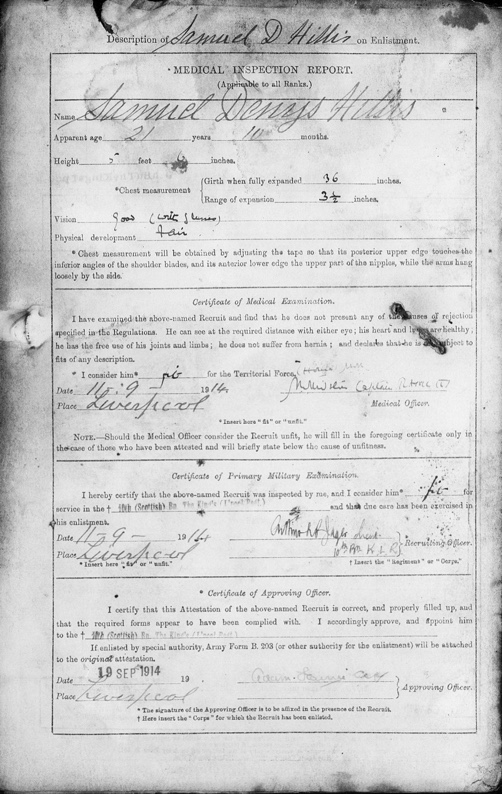 Description of Samuel D Hillis on Enlistment.
* MEDICAL INSPECTION REPORT.
(Applicable to all Ranks.)
Name Samuel Denys Hillis
Apparent age 21 years 10 months.
Height 5 feet 6 inches.
*Chest measurement { Girth when fully expanded 36 inches.
Range of expansion 3½ inches.
Vision Good (with glasses)
Physical development Fair
* Chest measurement will be obtained by adjusting the tape so that its posterior upper edge touches the
inferior angles of the shoulder blades, and its anterior lower edge the upper part of the nipples, while the arms hang
loosely by the side.
Certificate of Medical Examination.
I have examined the above-named Recruit and find that he does not present any of the causes of rejection
specified in the Regulations. He can see at the required distance with either eye; his heart and lungs are healthy;
he has the free use of his joints and limbs; he does not suffer from hernia; and declares that he is not subject to
fits of any description.
* I consider him * fit for the Territorial Force.
Date 11 : 9 - 1914
Place Liverpool Captain
Medical Officer.
* Insert here "fit" or "unfit."
NOTE.—Should the Medical Officer consider the Recruit unfit, he will fill in the foregoing certificate only in
the case of those who have been attested and will briefly state below the cause of unfitness.
Certificate of Primary Military Examination.
I hereby certify that the above-named Recruit was inspected by me, and I consider him* fit for
service in the † 10th (Scottish) Bn. The King's (L'pool Regt.) and that due care has been exercised in
his enlistment.
Date 11-9- 1914
10th Bn K.L.R. } Recruiting Officer.
Place Liverpool
* Insert here "fit" or "unfit." † Insert the "Regiment" or "Corps."
* Certificate of Approving Officer.
I certify that this Attestation of the above-named Recruit is correct, and properly filled up, and
that the required forms appear to have been complied with. I accordingly approve, and appoint him
to the † 10th (Scottish) Bn. The King's (L'pool Regt.)
If enlisted by special authority, Army Form B. 203 (or other authority for the enlistment) will be attached
to the original attestation.
19 SEP 1914
Date 19 . Adam
Place Liverpool } Approving Officer.
* The signature of the Approving Officer is to be affixed in the presence of the Recruit.
† Here insert the "Corps" for which the Recruit has been enlisted.